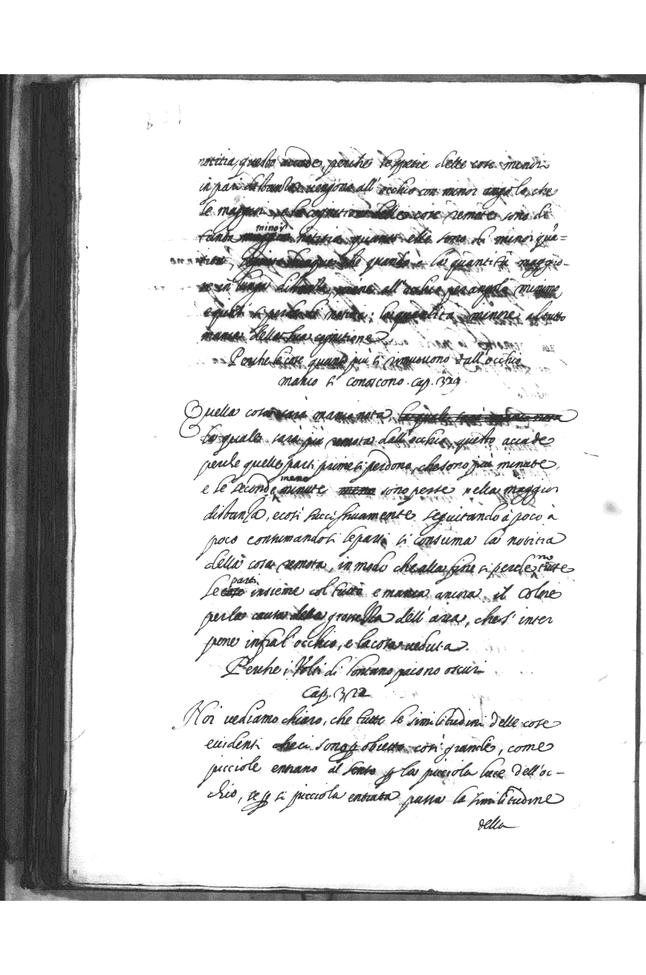 notitia, questo accade, perche le spetie delle cose minori
in pari distantia vengono all'occhio con minor angolo, che
le maggiori, e la cognitione delle cose remote sono di
tanta minor notitia quanto elle sono di minor quã=
tità,
e quasi si perde di notitia; la quantità minore al tutto
manca della sua cognitione
Perche le cose quanto più si rimuovono dall'occhio
manco si conoscono. Cap. 321
Quella cosa sarà manco nota,
la quale sarà più remota dall'occhio, questo accade
perche quelle parti prime si perdono, che sono più minute
e le seconde meno minute sono perse nella maggior
distanza, e così successivamente seguitando à poco à
poco consumandosi le parti si consuma la notitia
della cosa remota, in modo che alla fine si perdeno tutte
le parti insieme col tutto e manca ancora il colore
per la causa della grossezza dell'area, che s'inter
pone infra l'occhio, e la cosa veduta.
Perche i Volti di lontano paiono oscuri
Cap. 322
Noi vediamo chiaro, che tutte le similitudini delle cose
evidenti che ci sono per obietto così grande, come
picciole entrano al senso per la picciola luce dell'oc-
chio, se per sì picciola entrata passa la similitudine
della